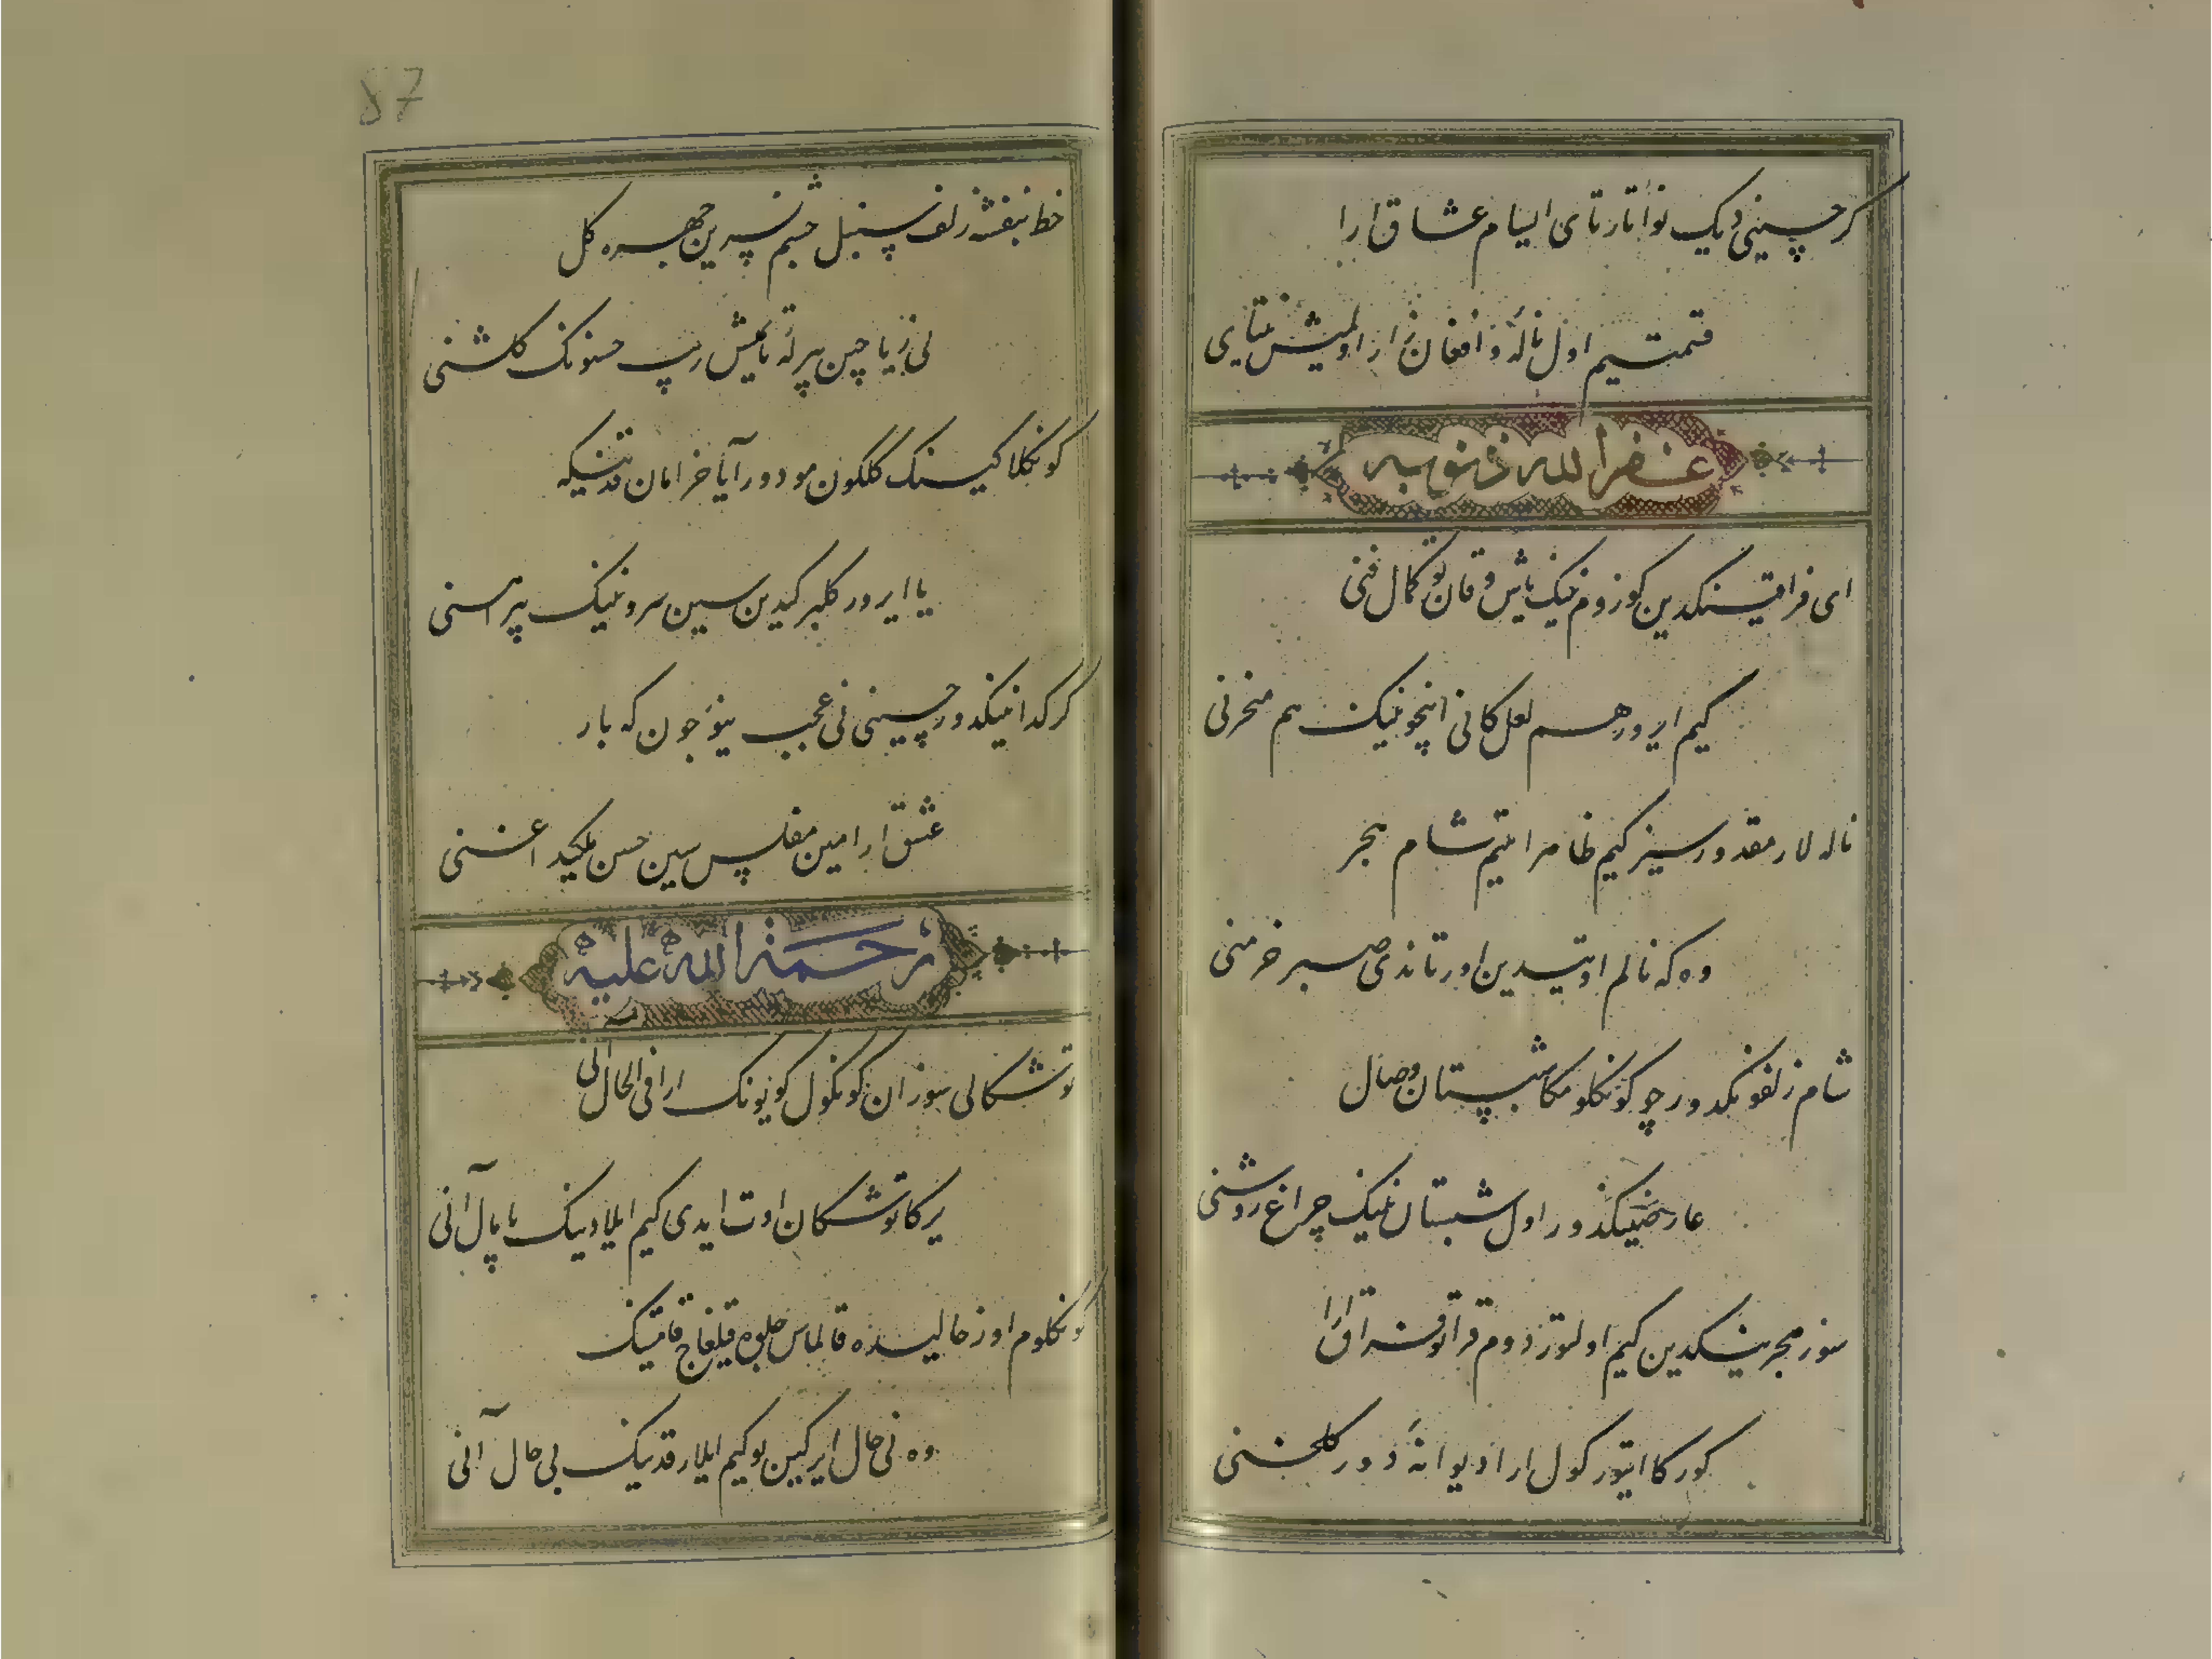 کر حسینی دیک نوا تارتای السام عشاق ارا
قتمتیم اول نالهٔ و افغان زار اولمیش نتایی
غفر الله ذنوبه
ای فراقینکدین کوزوم نینک یاش و قان توکماک فنی
کیم ایرور هم لعل کانی اینجو نینک هم مخزنی
ناله لار مقدورسیز کیم ظاهر ایتیم شام هجر
وه که نالم اوتیدین اورتاندی صبر خرمنی
شام زلفونکدور چو کونکلومکا شبستان وصال
عارضینکدور اول شبستان نینک چراغ روشنی
سوز هجرینکدین کیم اولتوردوم قراتوفراق ارا
کورکا ایتور کول ارا دیوانهٔ دور کلخنی
87
خط بنفشه زلف سنبل چشم نسرین چهره کل
نی زیبا چین یرله یاغمیش رب حسنونک کلشنی
کونکلاکینک کلکون مودور آیا خرامان قدینکه
یا ایرور کلبرکیدین سین سرو نینک پیراهنی
کر کداینکدور حسینی نی عجب نیوجون که بار
عشق ارا مین مفلس سین حسن ملکیدا غنی
رحمة الله علیه
توشکالی سوزان کونکول کویونک ارا فی الحال آنی
یرکا توشکان اوت ایدی کیم ایلادینک پایمال آنی
کونکلوم اوز حالیده قالماس جلوه قیلغاج قامتینک
وه نی حال ایرکین بو کیم ایلار قدینک بی حال آنی